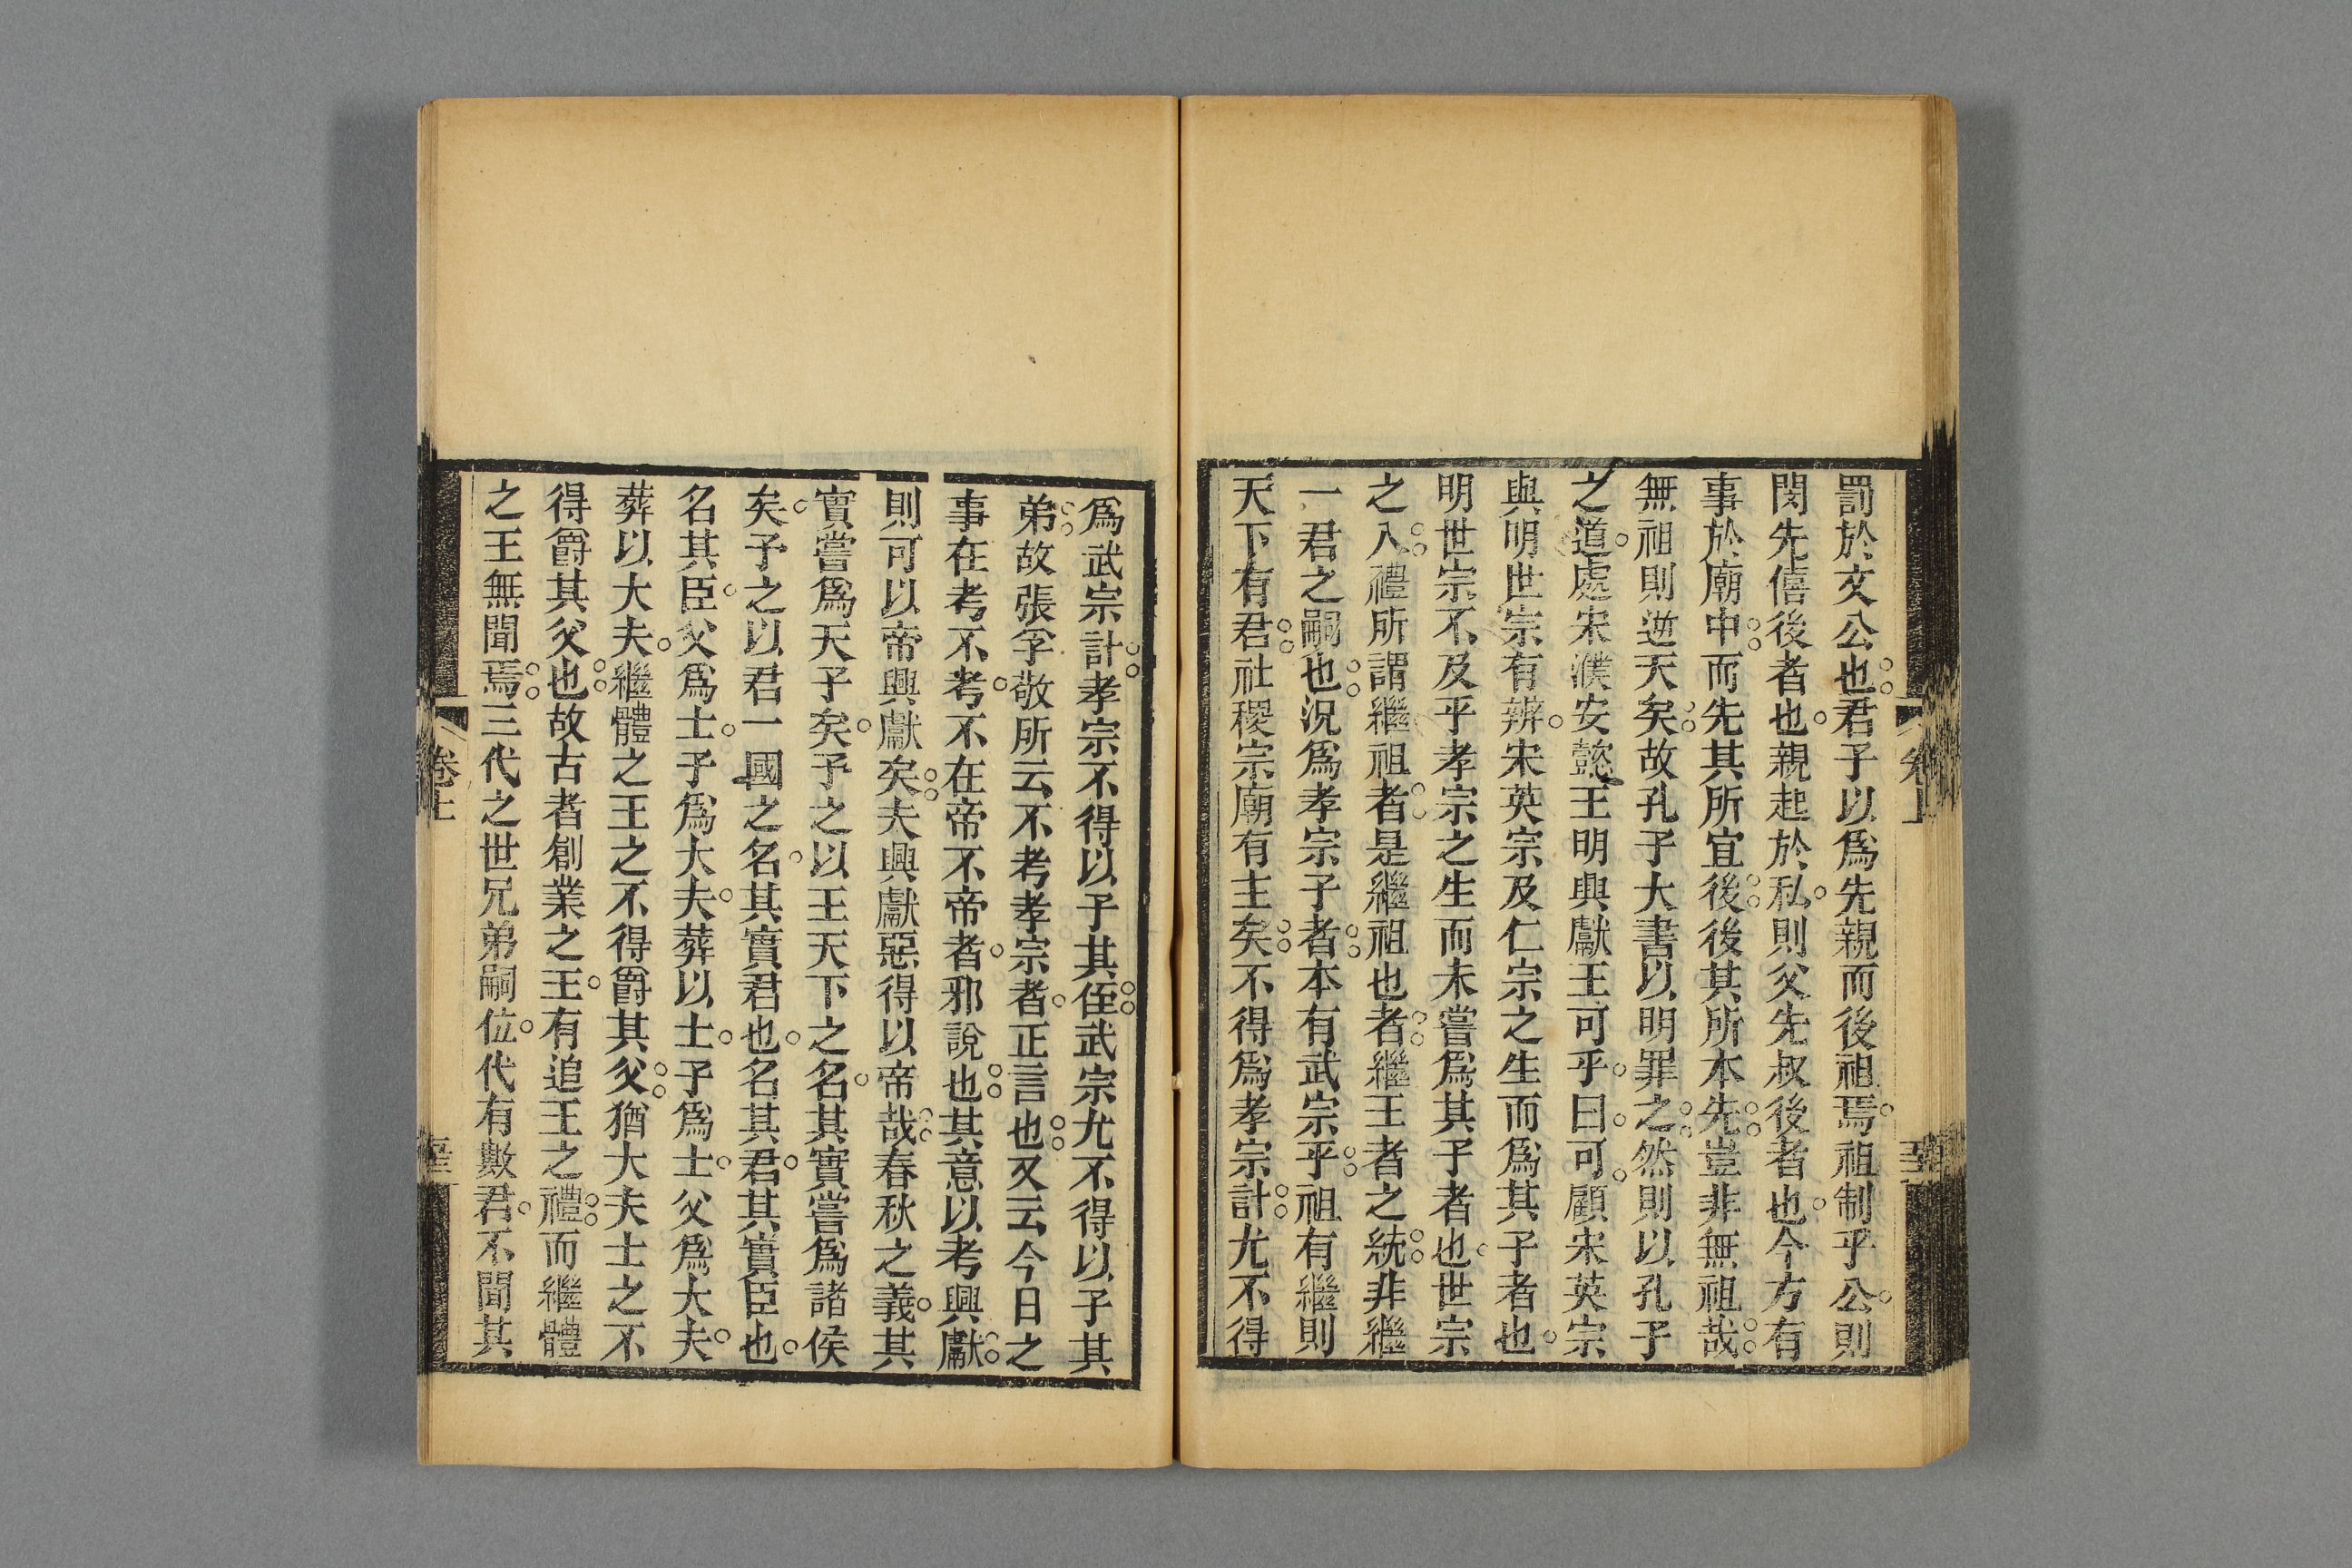 罰於文公也君子以爲先親而後祖焉祖制乎公則
閔先僖後者也親起於私則父先叔後者也今方有
事於廟中而先其所宜後後其所本先豈非無祖哉
無祖則逆天矣故孔子大書以明罪之然則以孔子
之道處宋濮安懿王明興獻王可乎曰可顧宋英宗
與明世宗有辨宋英宗及仁宗之生而爲其子者也
明世宗不及乎孝宗之生而未嘗爲其子者也世宗
之入禮所謂繼祖者是繼祖也者繼王者之統非繼
一君之嗣也況爲孝宗子者本有武宗乎祖有繼則
天下有君社稷宗廟有主矣不得爲孝宗計尤不得
爲武宗計孝宗不得以子其侄武宗尤不得以子其
弟故張孚敬所云不考孝宗者正言也又云今日之
事在考不考不在帝不帝者邪說也其意以考興獻
則可以帝興獻矣夫興獻惡得以帝哉春秋之義其
實嘗爲天子矣予之以王天下之名其實嘗爲諸侯
矣予之以君一國之名其實君也名其君其實臣也
名其臣父爲士子爲大夫葬以士子爲士父爲大夫
葬以大夫繼體之王之不得爵其父猶大夫士之不
得爵其父也故古者創業之王有追王之禮而繼體
之王無聞焉三代之世兄弟嗣位代有數君不聞其
卷上